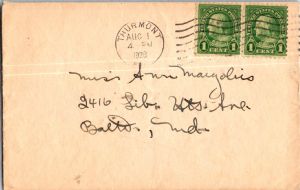 THURMONT
AUG 1
4 PM
1928
1 CENT 1
1 CENT 1
Miss Ann Margolis
2416 Lib. Hts. Ave.
Balto, Md.